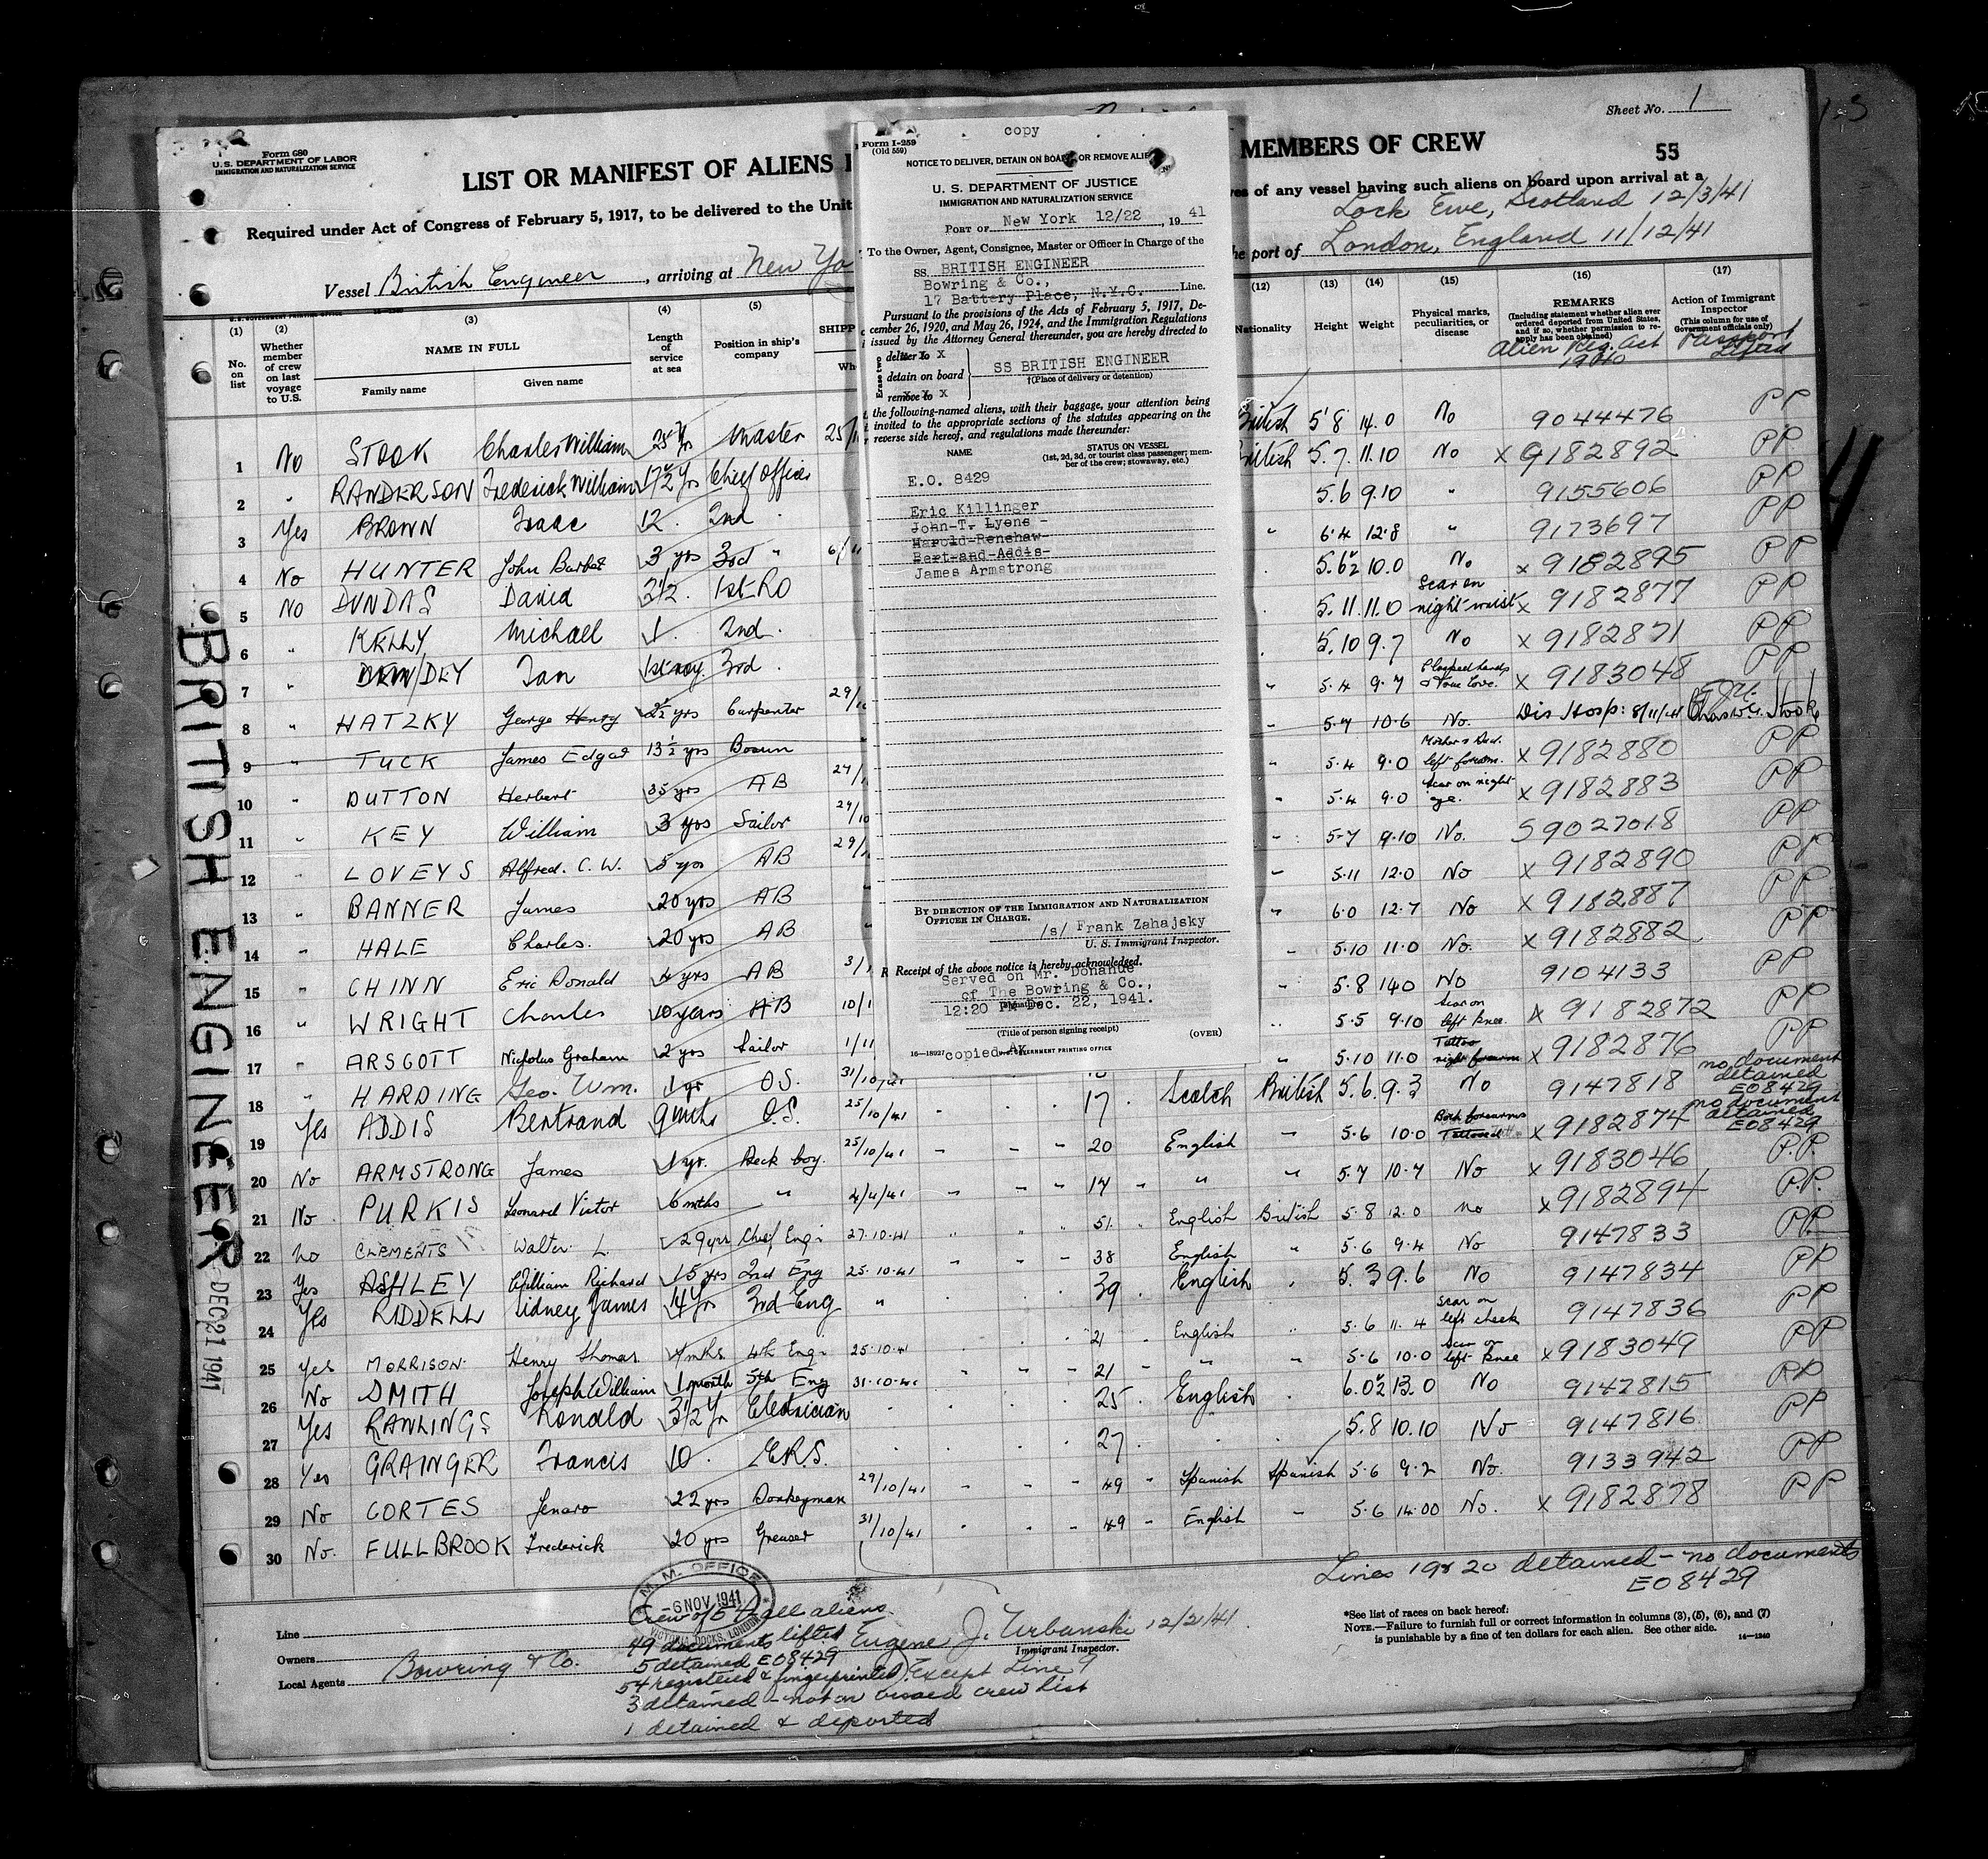 Sheet No. 1
Form 680
U. S. DEPARTMENT OF LABOR
IMMIGRATION AND NATURALIZATION SERVICE
LIST OR MANIFEST OF ALIENS
MEMBERS OF CREW
55
Required under Act of Congress of February 5, 1917, to be delivered to the Unit
es of any vessel having such aliens on board upon arrival at a
Lock Ewe, Scotland 12/3/41
Vessel British Engineer, arriving at New Yo
he port of London, England 11/12/41
(1) (2) (3) (4) (5) (12) (13) (14) (15) (16) (17)
No. on list
Whether member of crew on last voyage to U.S.
NAME IN FULL
Family name Given name
Length of service at sea
Position in ship's company
SHIPP
Wh
Nationality
Height
Weight
Physical marks, peculiarities, or disease
REMARKS
(Including statement whether alien ever ordered deported from United States, and if so, whether permission to re-apply has been obtained)
Alien Reg. Act 1940
Action of Immigrant Inspector
(This column for use of Government officials only)
1 No STOOK Charles William 25 Yr Master 25/1 British 5'8 14.0 No 9044476 PP
2 " RANDERSON Frederick William 17½ Yrs Chief Officer British 5.7. 11.10 No x 9182892 PP
3 Yes BROWN Isaac 12 . 2nd . 5.6 9.10 " 9155606 PP
4 No HUNTER John 3 yrs 3rd " 6/11 " 6.4 12.8 " 9173697 PP
5 No DUNDAS David 3½. 1st RO . 5.6½ 10.0 No x 9182895 PP
6 " KELLY Michael 1. 2nd . . 5.11. 11.0 Scar on right waist x 9182877 PP
7 " DEY Ian 1st voy. 3rd . . 5.10 9.7 No x 9182871 PP
8 " HATZKY George Henry 2½ yrs Carpenter 29/10 " 5.4 9.7 Clasped hands & True Love. x 9183048 PP
9 " TUCK James Edgar 13½ yrs Bosun " 5.7 10.6 No. Dis Hosp: 8/11/41 Chas W. Stook
10 " DUTTON Herbert 35 yrs AB 27/1 " 5.4 9.0 left forearm. x 9182880 PP
11 " KEY William 3 yrs Sailor 29/10 " 5.4 9.0 Scar on right eye. x 9182883 PP
12 " LOVEYS Alfred. C. W. 5 yrs AB 29/1 " 5.7 9.10 No. S9027018 PP
13 " BANNER James 20 yrs AB " 5.11 12.0 No x 9182890 PP
14 " HALE Charles. 20 yrs AB " 6.0 12.7 No x 9182887 PP
15 " CHINN Eric Donald 4 yrs AB 3/1 " 5.10 11.0 No. x 9182882 PP
16 " WRIGHT Charles 10 years AB 10/1 " 5.8 140 No 9104133 PP
17 " ARSCOTT Nicholas Graham 2 yrs Sailor 1/11 " 5.5 9.10 Scar on left knee. x 9182872 PP
18 " HARDING Geo. Wm. 1 yr OS. 31/10/41 " 5.10 11.0 Tattoo right forearm x 9182876 PP
19 Yes ADDIS Bertrand 9 mths O.S. 25/10/41 " " 17 . Scotch British 5.6. 9.3 No 9147818 no document detained E08429
20 No ARMSTRONG James 1 yr. Deck boy. 25/10/41 " " " 20 English " 5.6 10.0 Both forearms Tattooed x 9182874 no document detained E08429
21 No PURKIS Leonard Victor 6 mths " 4/11/41 " " " 17 " " " 5.7 10.7 No x 9183046 P.P.
22 No CLEMENTS Walter L. 29 yrs Chief Eng. 27.10.41 " " " 51. English British 5.8 12.0 no x 9182894 P.P.
23 Yes ASHLEY William Richard 15 yrs 2nd Eng 25.10.41 " " " 38 English " 5.6 9.4 No 9147833 P.P.
24 Yes RIDDELL Sidney James 14 Yrs 3rd Eng " . . . 39 . English . 5.3 9.6 No 9147834 PP
25 Yes MORRISON. Henry Thomas 4 mths 4th Eng. 25.10.41 . . . 21 " English " 5.6 11.4 Scar on left cheek 9147836 PP
26 No SMITH Joseph William 1 month 5th Eng 31.10.41 . " " 21 " " " 5.6 10.0 Scar on left knee x 9183049 PP
27 Yes RAWLINGS Ronald 3½ Yr Electrician . . . . 25. English . 6.0½ 13.0 No 9147815 PP
28 Yes GRAINGER Francis 10 . E.R.S. . . . . 27. . . 5.8 10.10 No 9147816 PP
29 No CORTES Jenaro 22 yrs Donkeyman 29/10/41 " " " 49 " Spanish Spanish 5.6 9.2 No. 9133942 PP
30 No. FULLBROOK Frederick 20 yrs Greaser 31/10/41 . . " 49 " English " 5.6 14.00 No. x 9182878 PP
BRITISH ENGINEER
DEC 21 1941
4
copy
Form I-259
(Old 559)
NOTICE TO DELIVER, DETAIN ON BOARD, OR REMOVE ALIEN
U. S. DEPARTMENT OF JUSTICE
IMMIGRATION AND NATURALIZATION SERVICE
PORT OF New York 12/22, 1941
To the Owner, Agent, Consignee, Master or Officer in Charge of the
SS. BRITISH ENGINEER
Bowring & Co.,
17 Battery Place, N.Y.C. Line.
Pursuant to the provisions of the Acts of February 5, 1917, De-
cember 26, 1920, and May 26, 1924, and the Immigration Regulations
issued by the Attorney General thereunder, you are hereby directed to
Erase two
deliver to x
detain on board
remove to x
SS BRITISH ENGINEER
†(Place of delivery or detention)
the following-named aliens, with their baggage, your attention being
invited to the appropriate sections of the statutes appearing on the
reverse side hereof, and regulations made thereunder:
NAME
STATUS ON VESSEL
(1st, 2d, 3d, or tourist class passenger; mem-
ber of the crew; stowaway, etc.)
E.O. 8429
Eric Killinger
John T. Lyons
Harold Renshaw
Bert and Addis
James Armstrong
BY DIRECTION OF THE IMMIGRATION AND NATURALIZATION
OFFICER IN CHARGE.
/s/ Frank Zahajsky
U. S. Immigrant Inspector.
Receipt of the above notice is hereby acknowledged.
Served on Mr. Donahue
of The Bowring & Co.,
12:20 PM Dec. 22, 1941.
(Title of person signing receipt)
(OVER)
16—18927 U.S. GOVERNMENT PRINTING OFFICE
copied
Lines 19 & 20 detained - no documents
E08429
M. M. OFFICE
-6 NOV 1941
VICTORIA DOCKS, LONDON
Line
Owners
Local Agents Bowring & Co.
Crew of 54 all aliens.
49 documents lifted
5 detained E08429
54 registered & fingerprinted. Except Line 9
3 detained - not on visaed crew list
1 detained & deported
Eugene J. Urbanski 12/2/41
Immigrant Inspector.
*See list of races on back hereof:
NOTE.—Failure to furnish full or correct information in columns (3), (5), (6), and (7)
is punishable by a fine of ten dollars for each alien. See other side. 14—1240